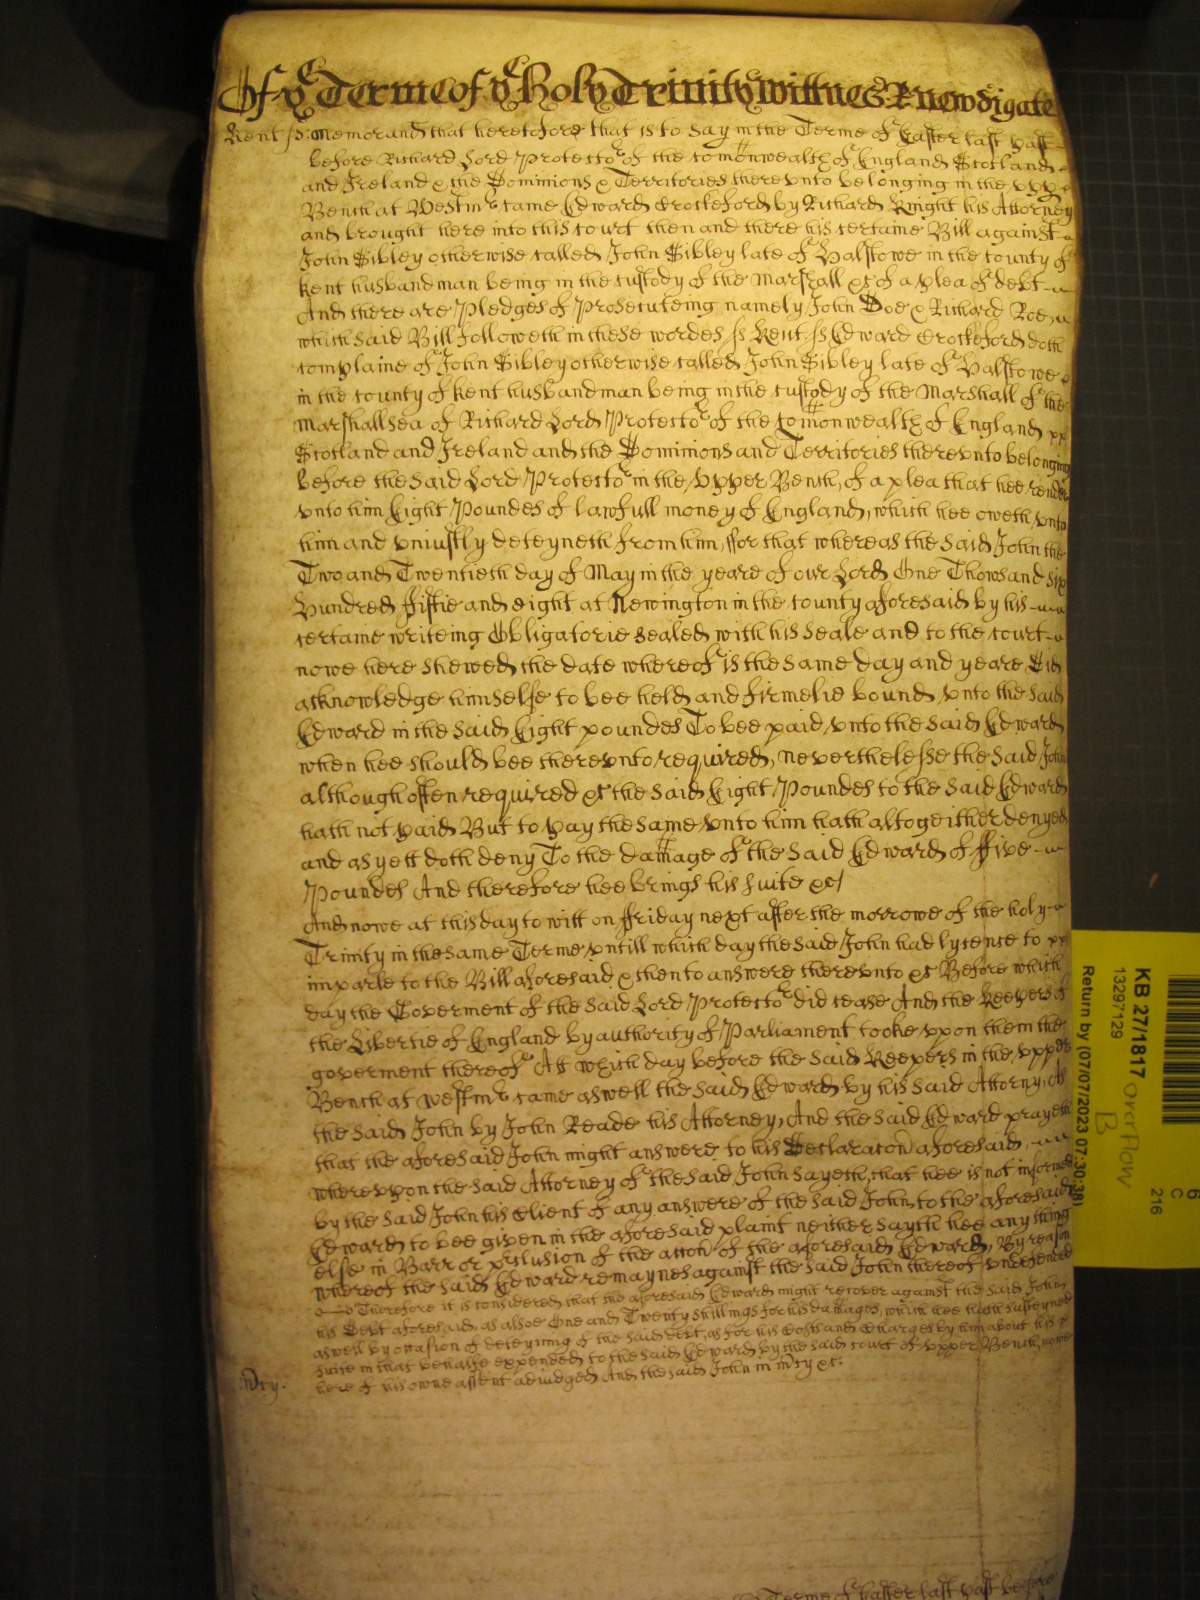 Of ye Terme of ye Holy Trinity wittnes R: Newdigate
Kent ss: Memorand that heretofore that is to say in the Terme of Easter last past
before Richard Lord Protector of the Comonwealth of England Scotland
and Ireland & the Dominions & Territories therevnto belonging in the vpp
Bench at Westmr came Edward Crockeford by Richard Knight his Attorney
and brought here into this Court then and there his certaine Bill against
John Sibley otherwise called John Sibley late of Halstowe in the County of
Kent husbandman being in the custody of the Marshall &c of a plea of debt
And there are Pledges of Prosecuteing namely John Doe & Richard Roe,
which said Bill followeth in these wordes ss Kent ss Edward Crockeford doth
complaine of John Sibley otherwise called John Sibley late of Halstowe
in the County of Kent husbandman being in the custody of the Marshall of the
Marshallsea of Richard Lord Protector of the Comonwealth of England
Scotland and Ireland and the Dominions and Territories therevnto belonging
before the said Lord Protector in the Vpper Bench, of a plea that hee render
vnto him Eight Poundes of lawfull money of England, which hee oweth vnto
him and vniustly deteyneth from him, ffor that whereas the said John the
Two and Twentieth day of May in the yeare of our Lord One Thowsand six
Hundred ffiftie and eight at Newington in the County aforesaid by his
certaine writeing Obligatorie sealed with his seale and to the Court
nowe here shewed the date whereof is the same day and yeare Did
acknowledge himselfe to bee held and firmelie bound vnto the said
Edward in the said Eight poundes To bee paid vnto the said Edward
when hee should bee therevnto required, neverthelesse the said John
although often required &c the said Eight Poundes to the said Edward
hath not paid But to pay the same vnto him hath altogeither denyed
and as yett doth deny To the damage of the said Edward of ffive
Poundes And therefore hee brings his suite &c/
And nowe at this day to witt on ffriday next after the morrowe of the holy
Trinity in the same Terme vntill which day the said John had lycence to
imparle to the Bill aforesaid & then to answere therevnto &c Before which
day the Goverment of the said Lord Protector did cease And the Keepers of
the Libertie of England by authority of Parliament tooke vpon them the
goverment thereof Att which day before the said Keepers in the vpper
Bench at Westmr came aswell the said Edward by his said Attorny, As
the said John by John Reade his Attorney, And the said Edward prayeth
that the aforesaid John might answere to his Declaracon aforesaid
wherevpon the said Attorney of the said John sayeth, that hee is not informed
by the said John his Client of any answere of the said John, to the aforesaid
Edward to bee given in the aforesaid plaint neither sayth hee any thing
else in Barr or preclusion of the accon of the aforesaid Edward, By reason
whereof the said Edward remaynes against the said John thereof vndefended
Therefore it is considered that the aforesaid Edward might recover against the said John
his Debt aforesaid, as alsoe One and Twenty shillings for his damages, which hee hath susteyned
aswell by occasion of deteyning of the said debt, as for his Costs and Charges by him about his
suite in that behalfe expended to the said Edward by the said Court of vpper Bench nowe
here of his owne assent adiudged And the said John in mercy &c:
mcy.
Terme of Easter last past before
KB 27/1817
13297129
Return by (07/07/2023 07:30:38)
overflow
B
C
216